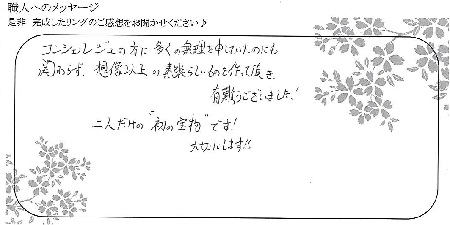 職人へのメッセージ
是非 完成したリングのご感想をお聞かせください♪
コンシェルジュの方に多くの無理を申していたのにも
関わらず、想像以上の素晴らしいものを作って頂き
有難うございました!
二人だけの"初の宝物"です!
大切にします!!